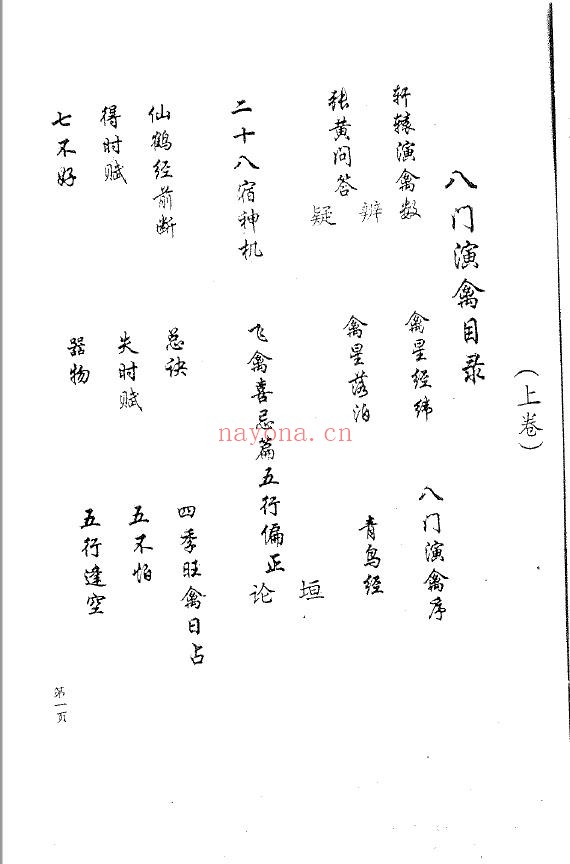 (上卷)
八门演禽目录
轩辕演禽数 禽星经纬 八门演禽序
辨
张黄问答 禽星落泊 青鸟经
疑 垣
二十八宿神机 飞禽喜忌篇 五行偏正论
仙鹤经前断 总诀 四季旺禽日占
得时赋 失时赋 五不怕
七不好 器物 五行逢空
第一页
nayona.cn